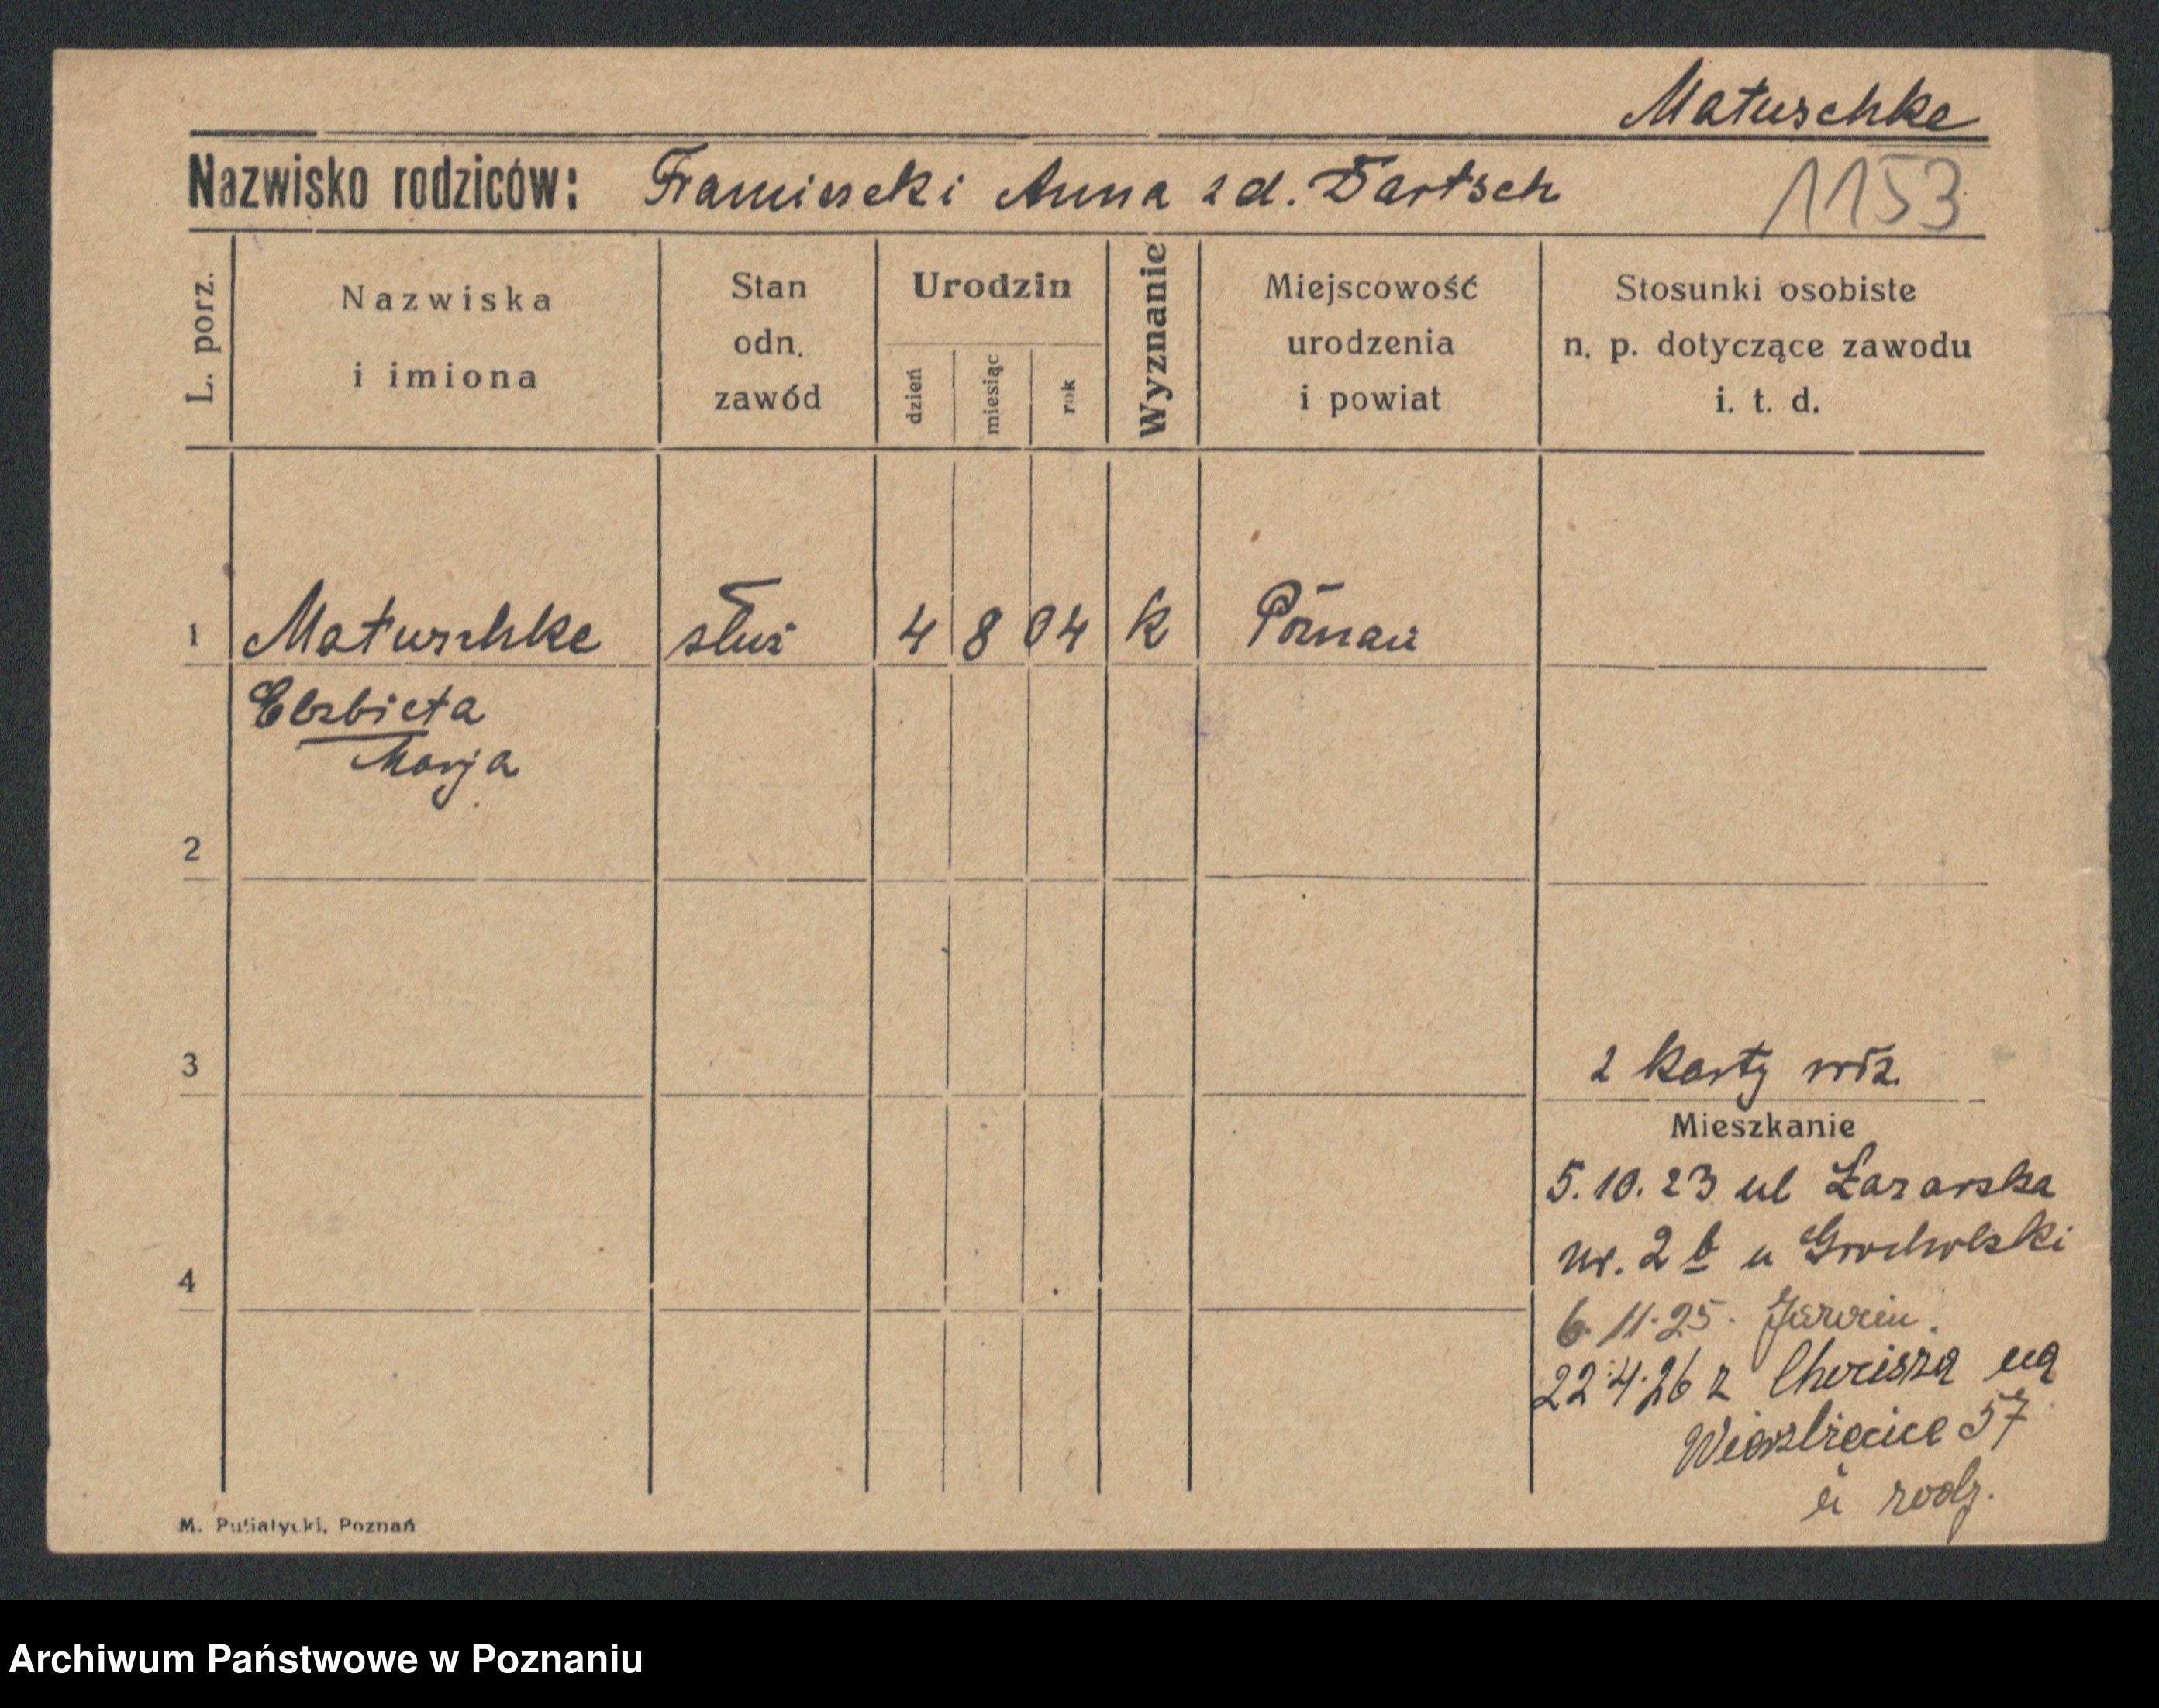 Matuschke
Nazwisko rodziców: Franciszek i Anna zd. Bartsch
1153
L. porz.
Nazwiska
i imiona
Stan
odn.
zawód
Urodzin
dzień
miesiąc
rok
Wyznanie
Miejscowość
urodzenia
i powiat
Stosunki osobiste
n. p. dotyczące zawodu
i. t. d.
1 Matuschke służ 4 8 04 k Poznań
Elżbieta
Marja
2
3
2 karty
Mieszkanie
5.10.23 ul Łazarska
nr. 2 b u Grocholski
4
6.11.25. Jarocin.
22.4.26 z na
Wierzbięcice 57
u rodz.
M. Putiatycki, Poznań
Archiwum Państwowe w Poznaniu